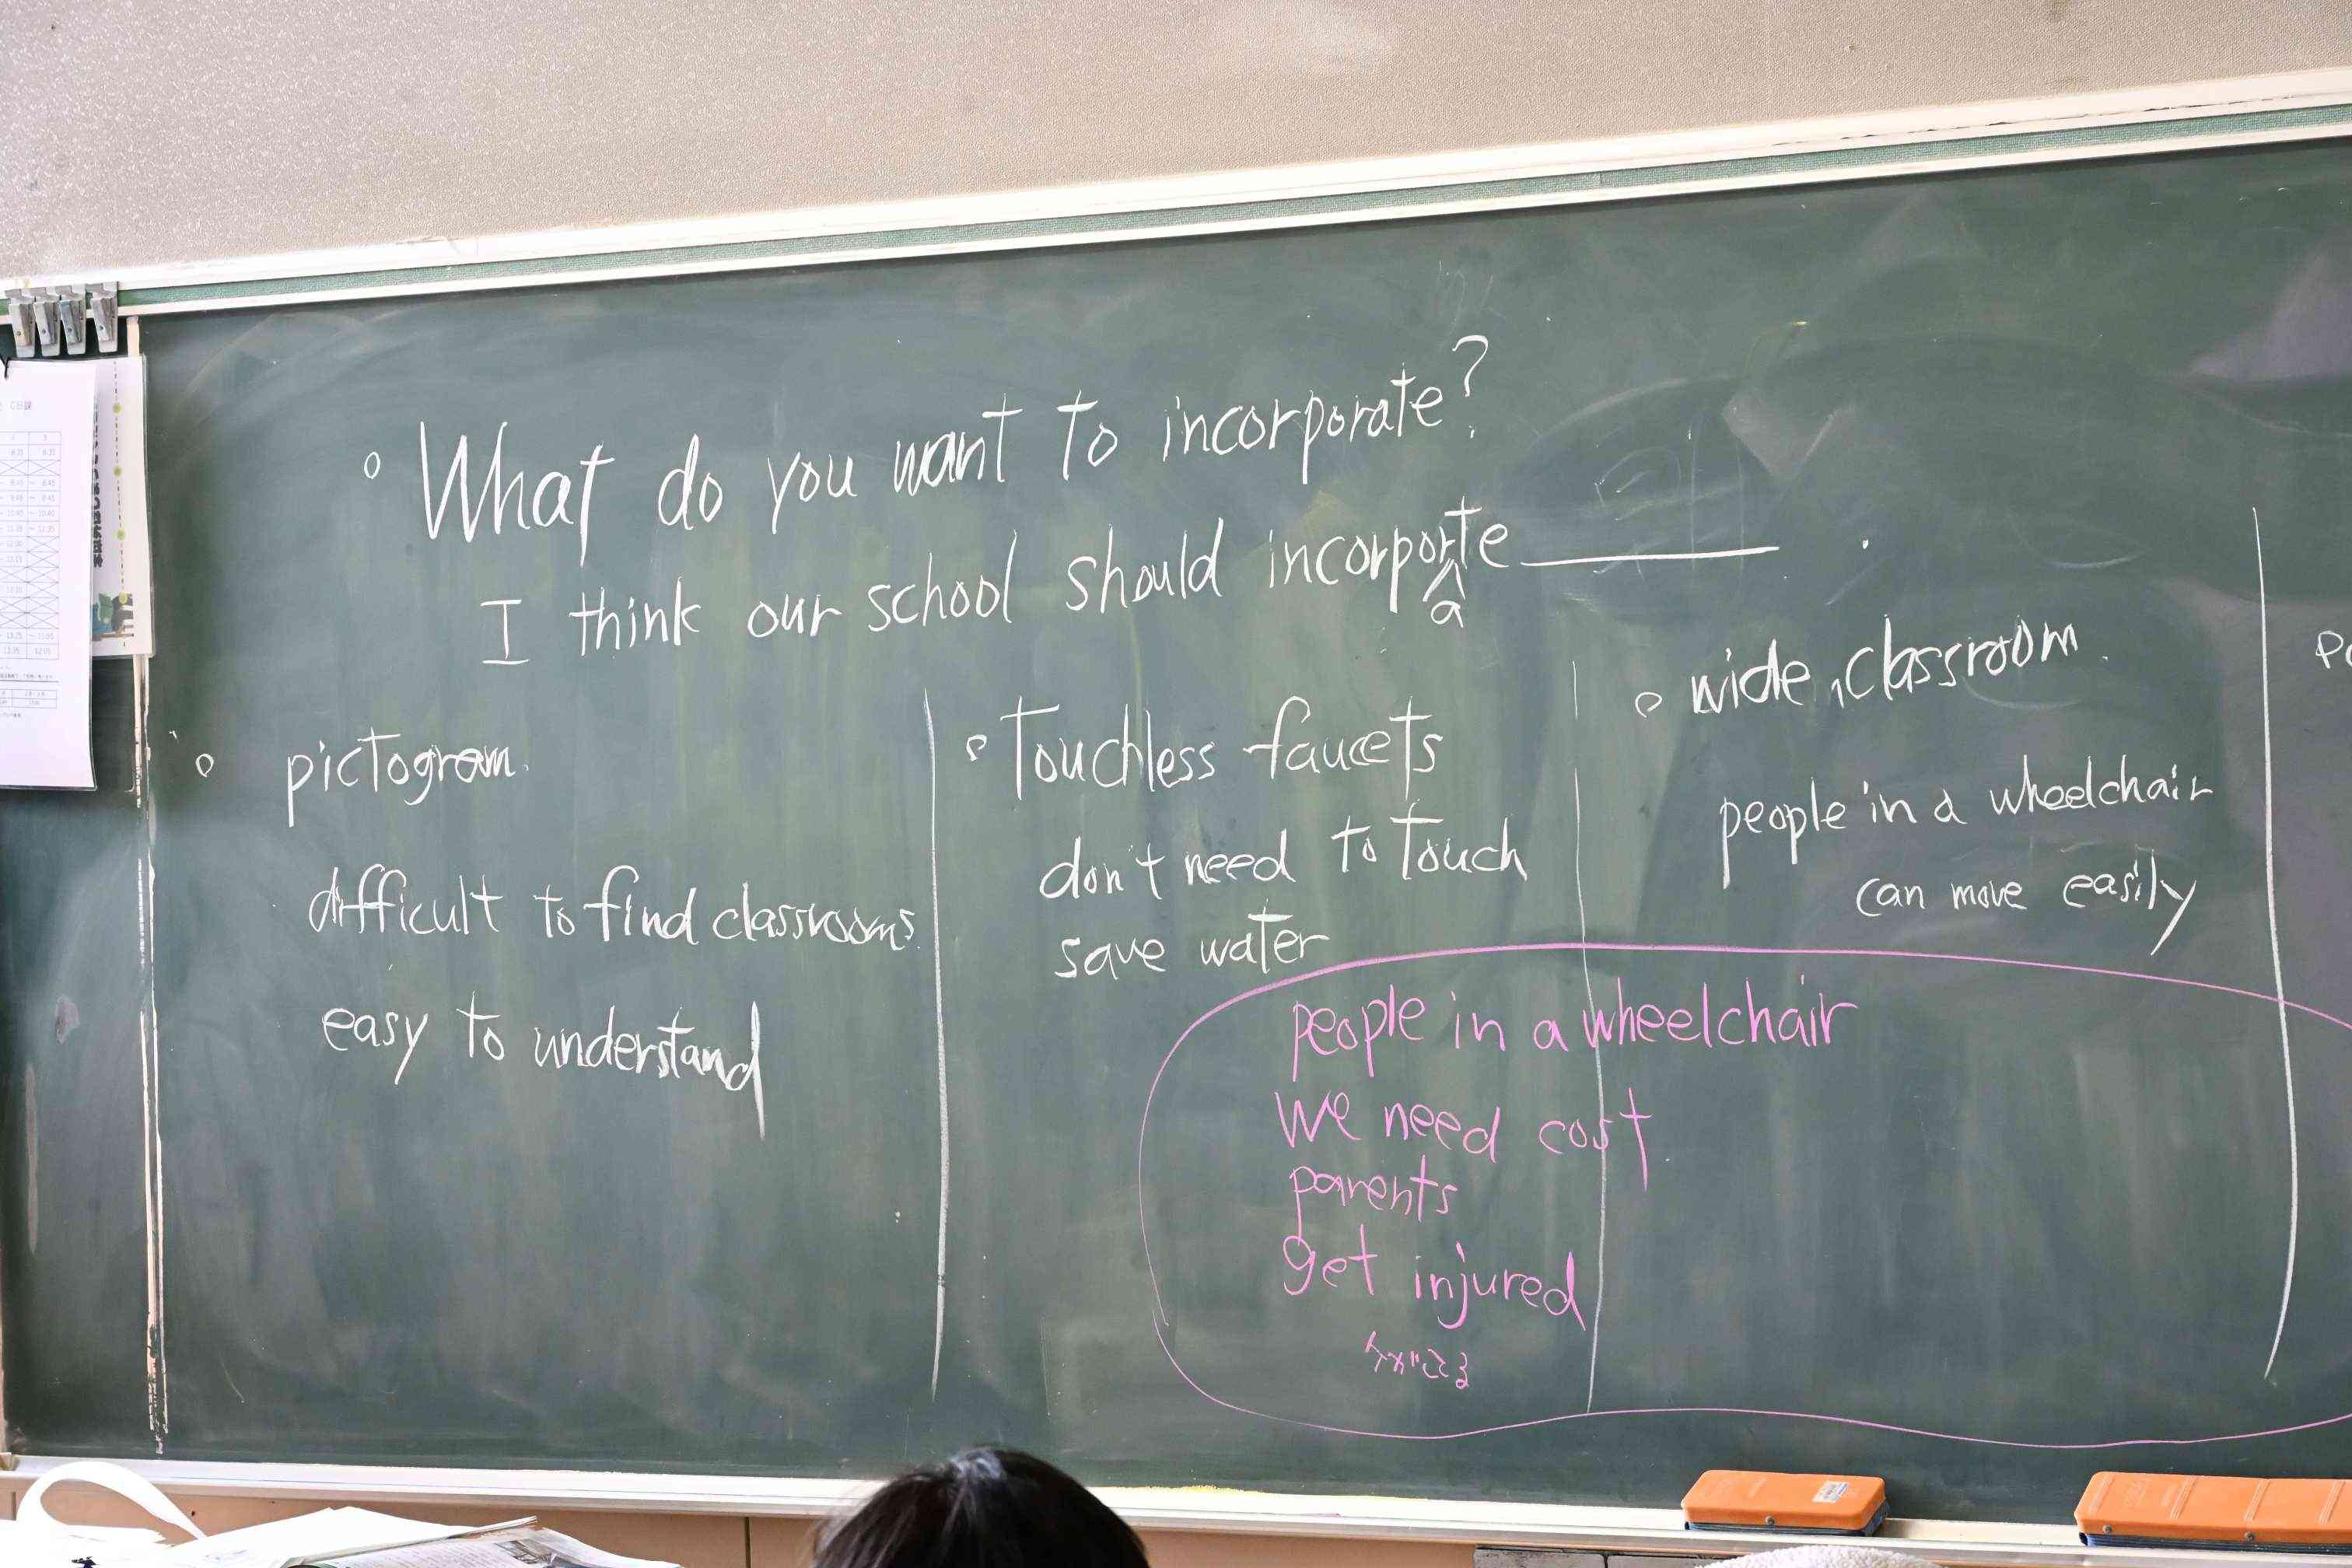 ○ What do you want to incorporate?
I think our school should incorporte ______ .
a
○ pictogram.
difficult to find classrooms.
easy to understand
○ Touchless faucets
don't need to touch
save water
○ wide classroom.
people in a wheelchair
can move easily
people in a wheelchair
we need cost
parents
get injured